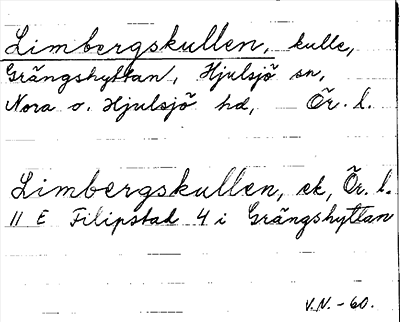 Limbergskullen, kulle,
Grängshyttan, Hjulsjö sn,
Nora o. Hjulsjö hd, Ör. l.
Limbergskullen, ek, Ör. l.
11 E Filipstad 4 i Grängshyttan
V.N. -60.